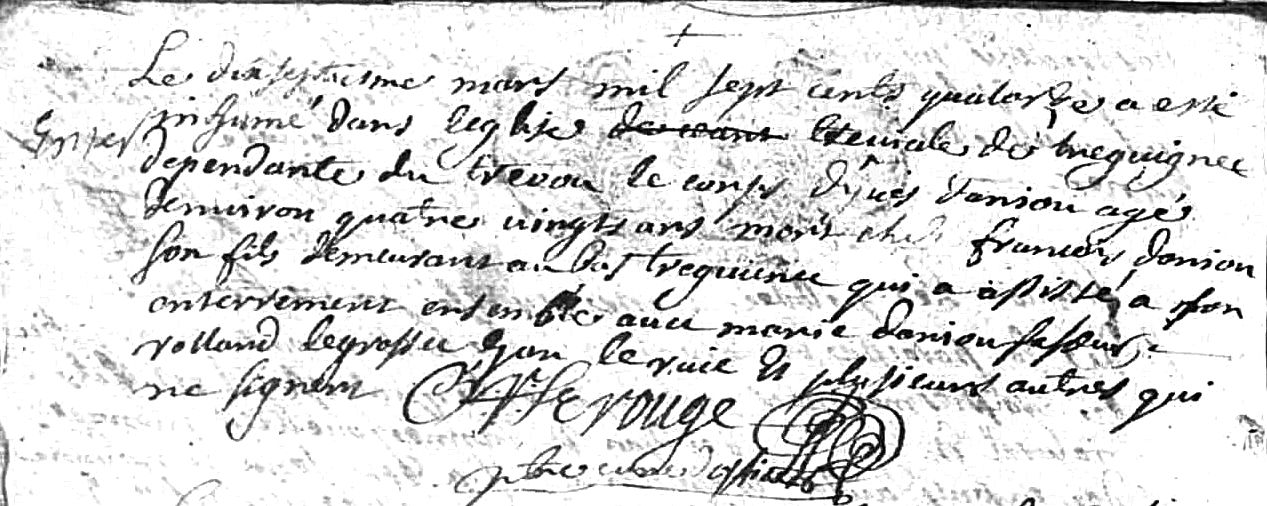 Le dixseptiesme mars mil sept cents quatorze a esté
inhumé dans leglise de treguignec
dependante du trevou le corps d'yves daniou agé
denuiron quatre uingts ans mort chés francois daniou
son fils demeurant au bas treguienec qui a assisté a son
enterrement ensemble auec marie daniou sa sœur,
rolland legrossec Jan le et plusieurs autres qui
ne signent Le rouge
ptre curé